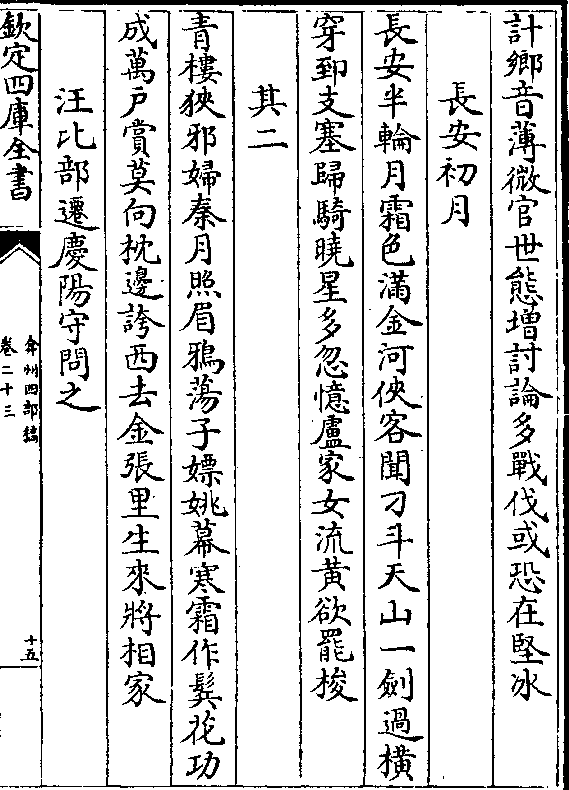 計鄉音薄微官世態增討論多戰伐或恐在堅冰
長安初月
長安半輪月霜色滿金河俠客聞刁斗天山一劍過橫
穿郅支塞歸騎曉星多忽憶盧家女流黃欲罷梭
其二
青樓狹邪婦秦月照眉鴉蕩子嫖姚幕寒霜作鬂花功
成萬戶賞莫向枕邊誇西去金張里生來將相家
汪比部遷慶陽守問之
欽定四庫全書
弇州四部稿
卷二十三
十五